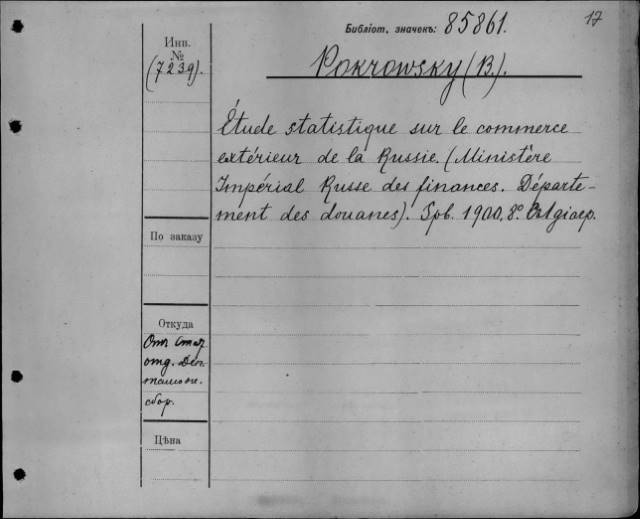 17
Библіот. значекъ: 85861.
Инв.
№
(7239).
Pokrowsky (B.).
Étude statistique sur le commerce
extérieur de la Russie. (Ministère
Impérial Russe des finances. Départe-
ment des douanes). Spb. 1900. 8º.
По заказу
Откуда
отд. Деп.
тамож.
сбор.
Цѣна